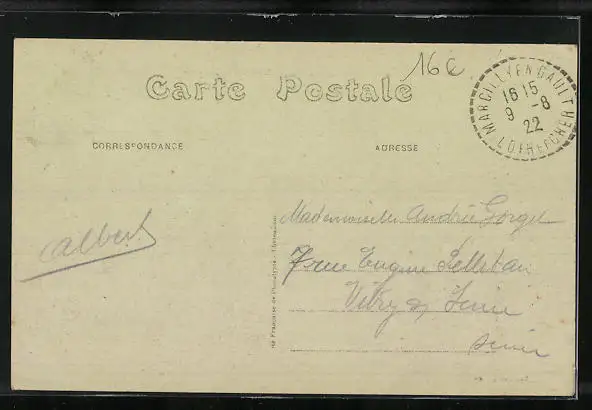 16€
Carte Postale
CORRESPONDANCE
ADRESSE
MARCILLY EN GAULT
16 15
9 - 8
22
LOIR ET CHER
Mademoiselle Andrée Gorget
7 rue Eugène Pelletan
Vitry s/ Seine
Seine
Albert